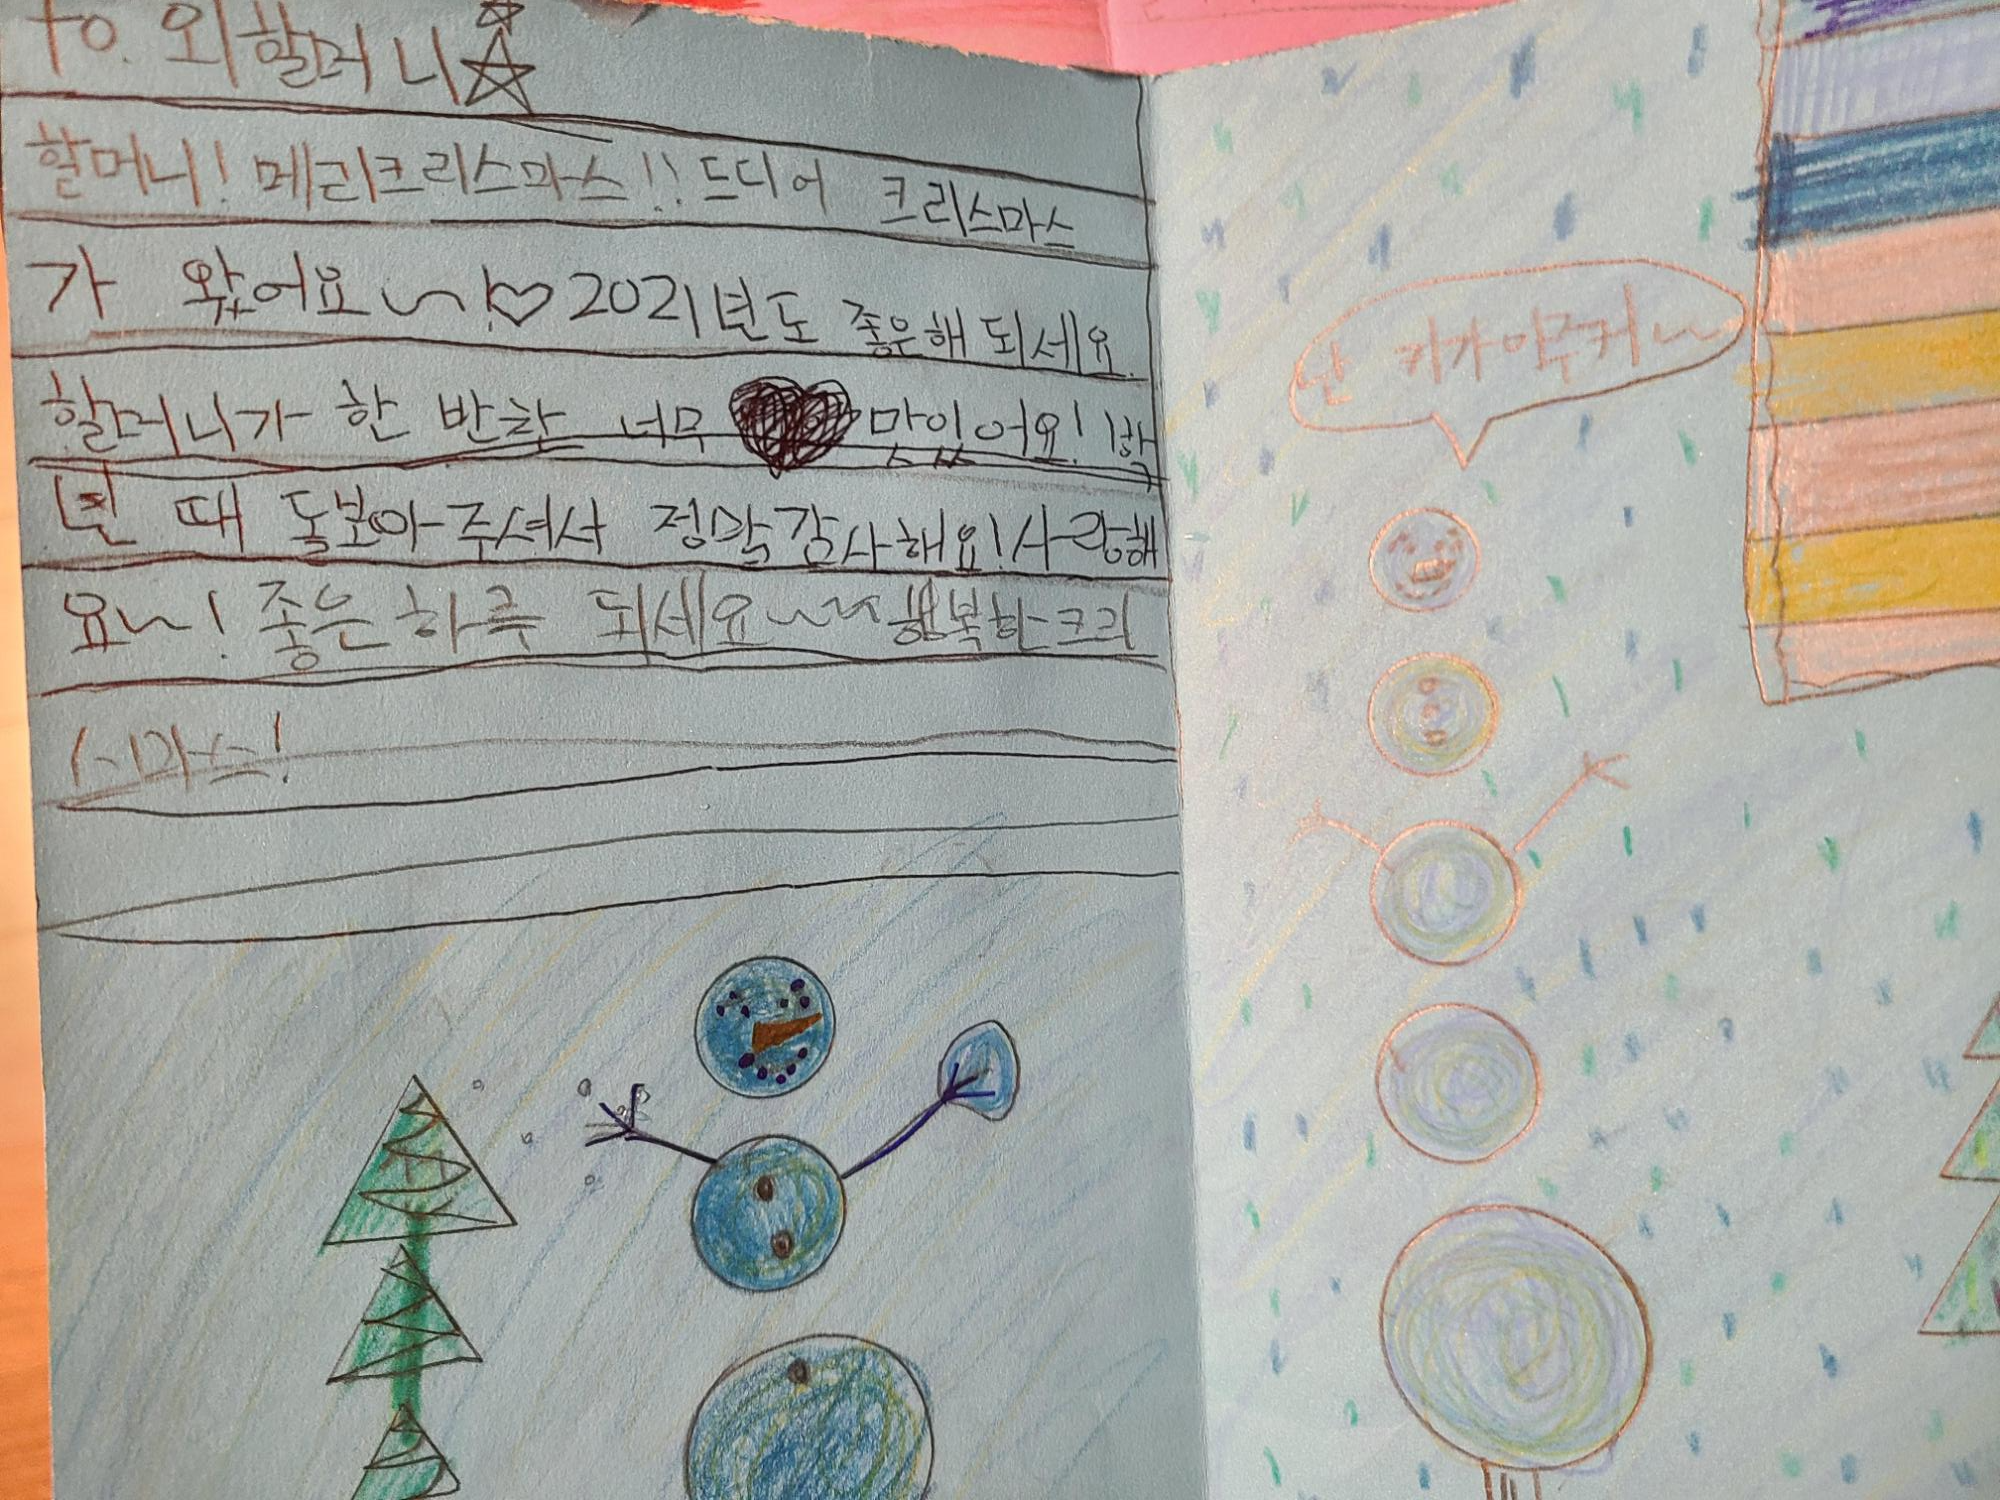 to. 외할머니
할머니! 메리크리스마스!! 드디어 크리스마스
가 왔어요~!♡ 2021년도 좋은해 되세요.
할머니가 한 반찬 너무 맛있어요!
때 돌보아주셔서 정말감사해요! 사랑해
요~! 좋은하루 되세요~~ 행복한크리
스마스!
난 키가아주커~